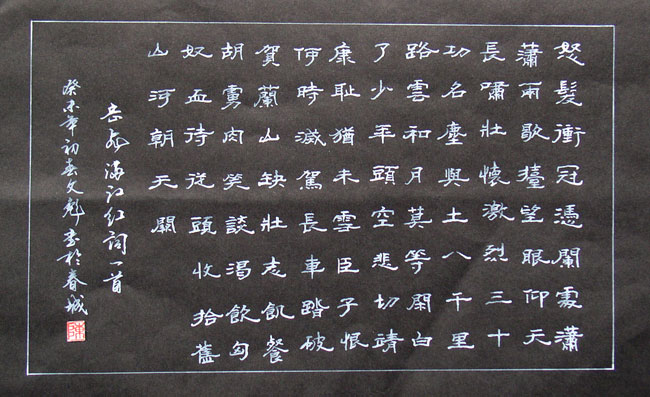 怒髮衝冠憑闌處瀟
瀟雨歇擡望眼仰天
長嘯壯懷激烈三十
功名塵與土八千里
路雲和月莫等閑白
了少年頭空悲切靖
康耻猶未雪臣子恨
何時滅駕長車踏破
賀蘭山缺壯志飢餐
胡虜肉笑談渴飲匈
奴血待從頭收拾舊
山河朝天闕
岳飛滿江紅詞一首
癸未年初春文魁書於春城